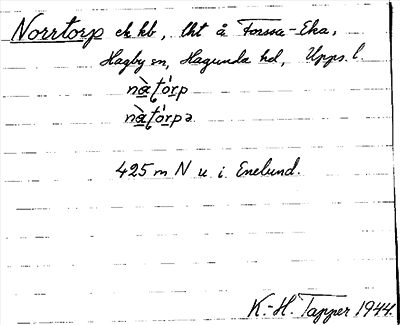 Norrtorp ek kb, lht å Forssa-Eka,
Hagby sn, Hagunda hd, Upps. l.
nàt́órp
nàt́órpə
425 m N u. i. Enelund.
K.-H. Tapper 1944.